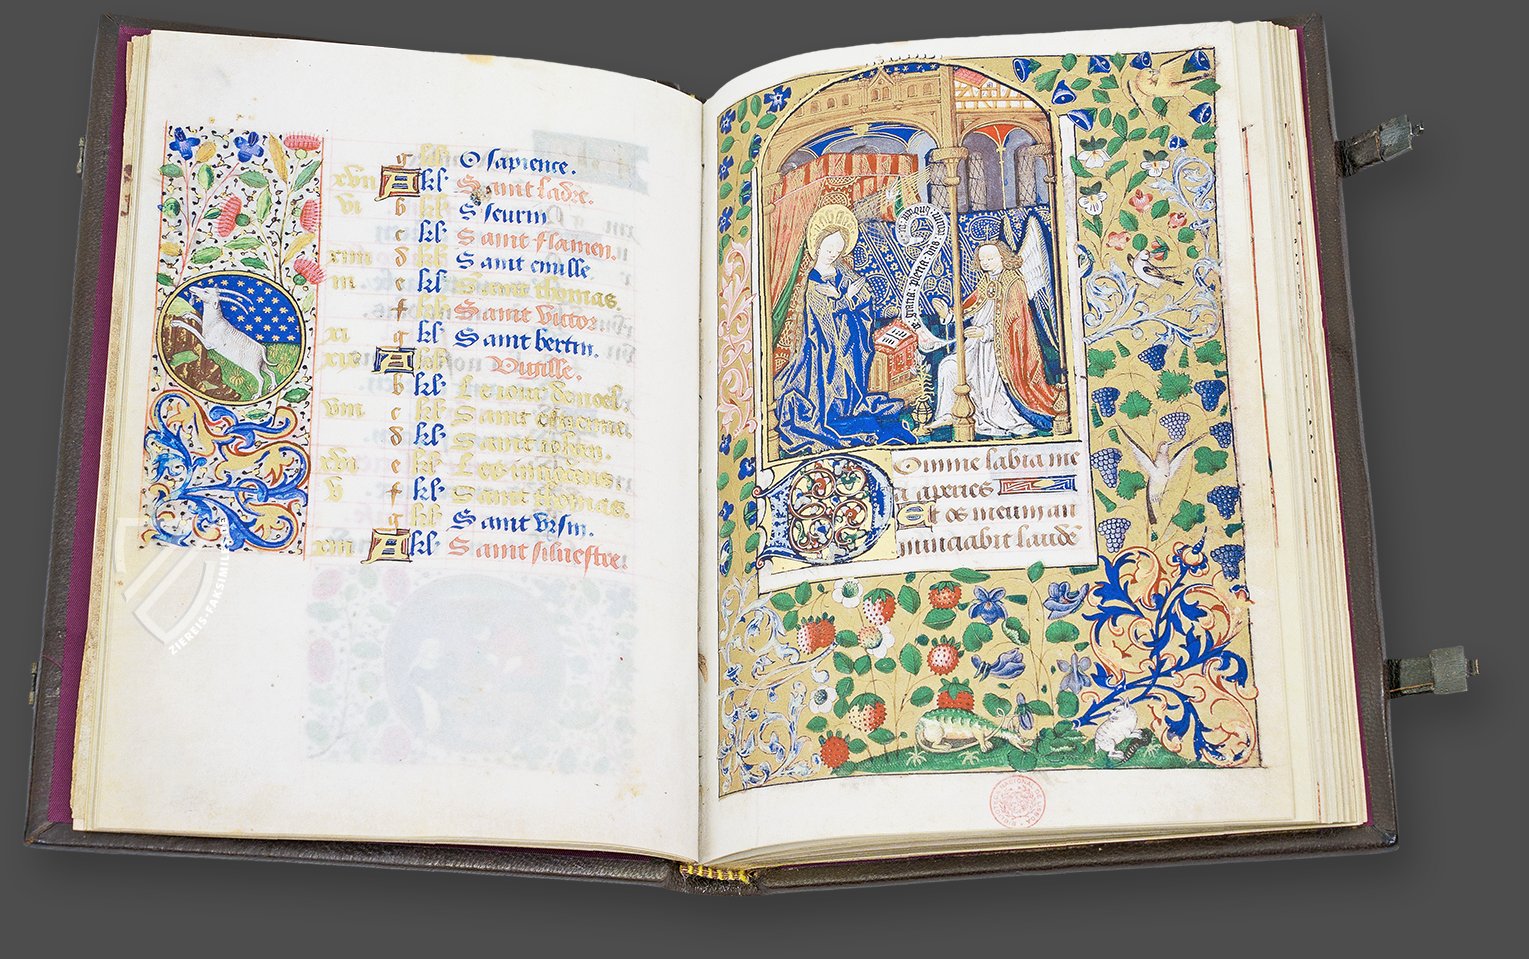 g kl O sapience.
xvii A kl Saint ladre.
vi b kl S seurin
c kl Saint flamen.
xiiii d kl Saint emille
iii e kl Saint thomas.
f kl Saint victor
xi g kl Saint bertin.
xix A kl Vigille.
b kl Le iour de noel.
viii c kl Saint estienne.
d kl Saint iehan.
xvi e kl Les innocens
v f kl Saint thomas.
g kl Saint vrsin.
xiii A kl Saint siluestre.
ZIEREIS-FAKSIMILE
gracia plena dns tecum
Domine labia me
a aperies
Et os meum an
nunciabit laudē